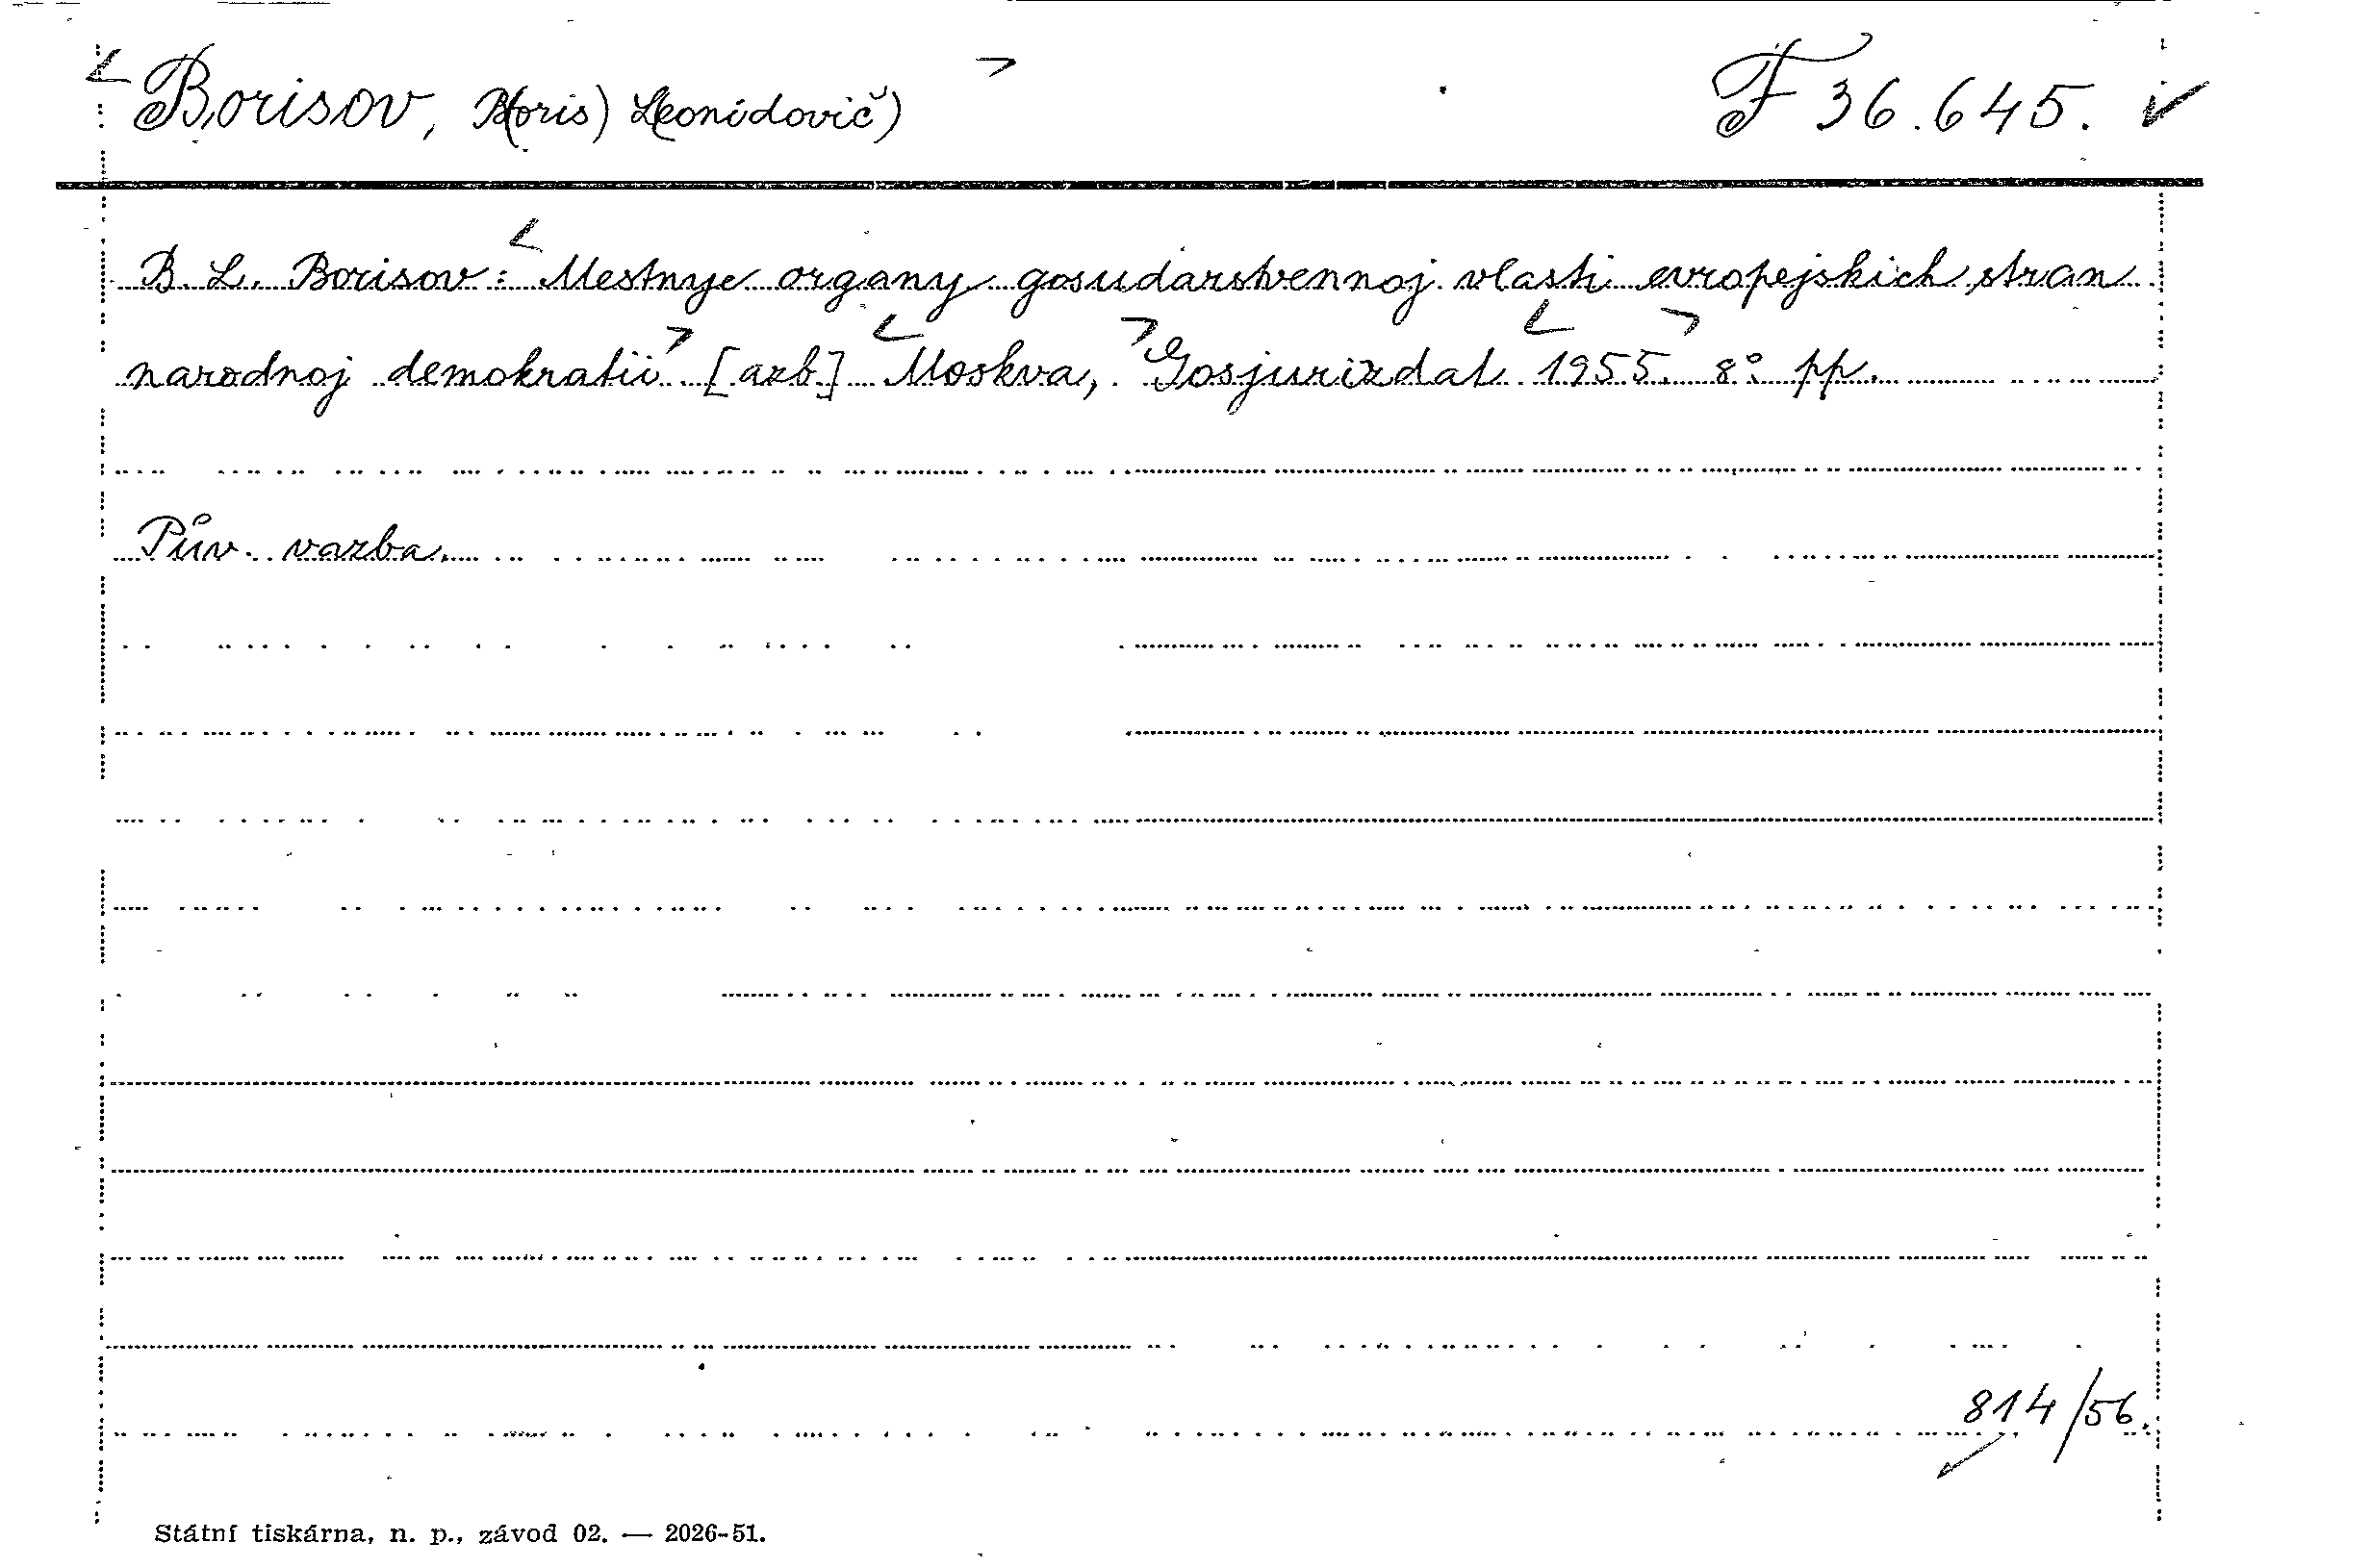 < Borisov, B(oris) L(eonidovič) > F 36.645. ✓
B. L. Borisov: < Mestnye organy gosudarstvennoj vlasti evropejskich stran
narodnoj demokratii > [azb.] < Moskva, > Gosjurizdat < 1955. > 8° pp.
Pův. vazba.
814/56.
Státní tiskárna, n. p., závod 02. — 2026-51.